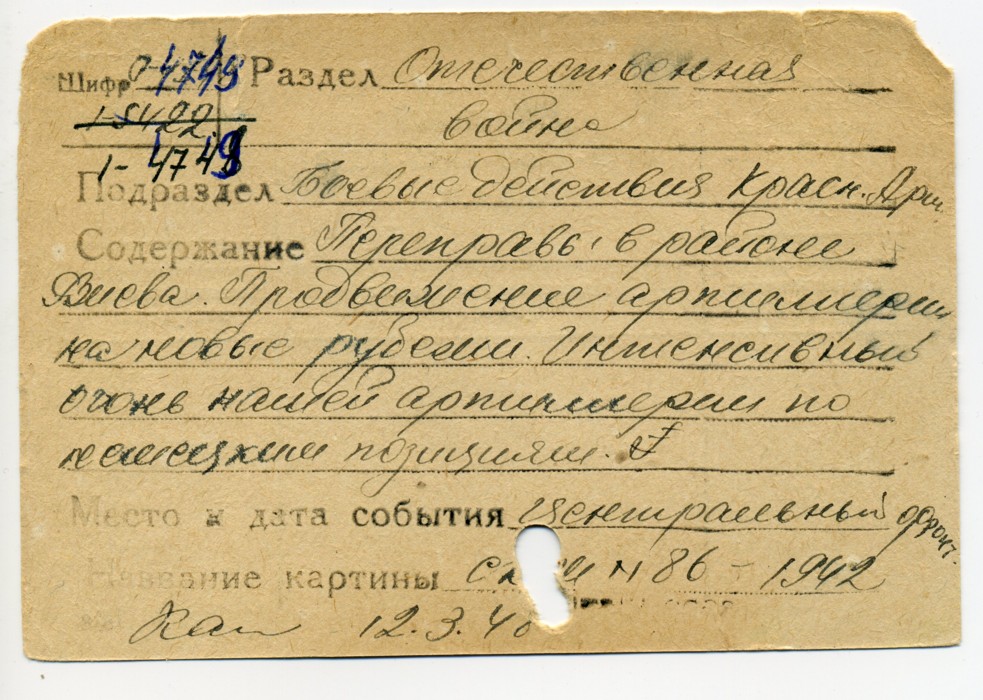 Шифр 0-4749 Раздел Отечественная
1-5122. война
1-4749
Подраздел Боевые действия Красн. Арм.
Содержание Переправы в районе
Продвижение артиллерии
на новые рубежи. Интенсивный
огонь нашей артиллерии по
немецким позициям.
Место и дата события Центральный фронт.
Название картины N 86 - 1942
12.3.4